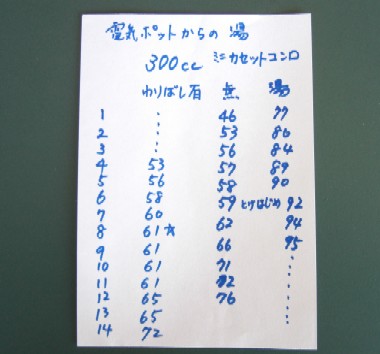 電気ポットからの 湯
300cc ミニカセットコンロ
わりばし有 無 湯
1 : 46 77
2 : 53 86
3 : 56 84
4 53 57 89
5 56 58 90
6 58 59 とけはじめ 92
7 60 62 94
8 61 66 95
9 61 71 :
10 61 72 :
11 61 76 :
12 65 :
13 65 :
14 72